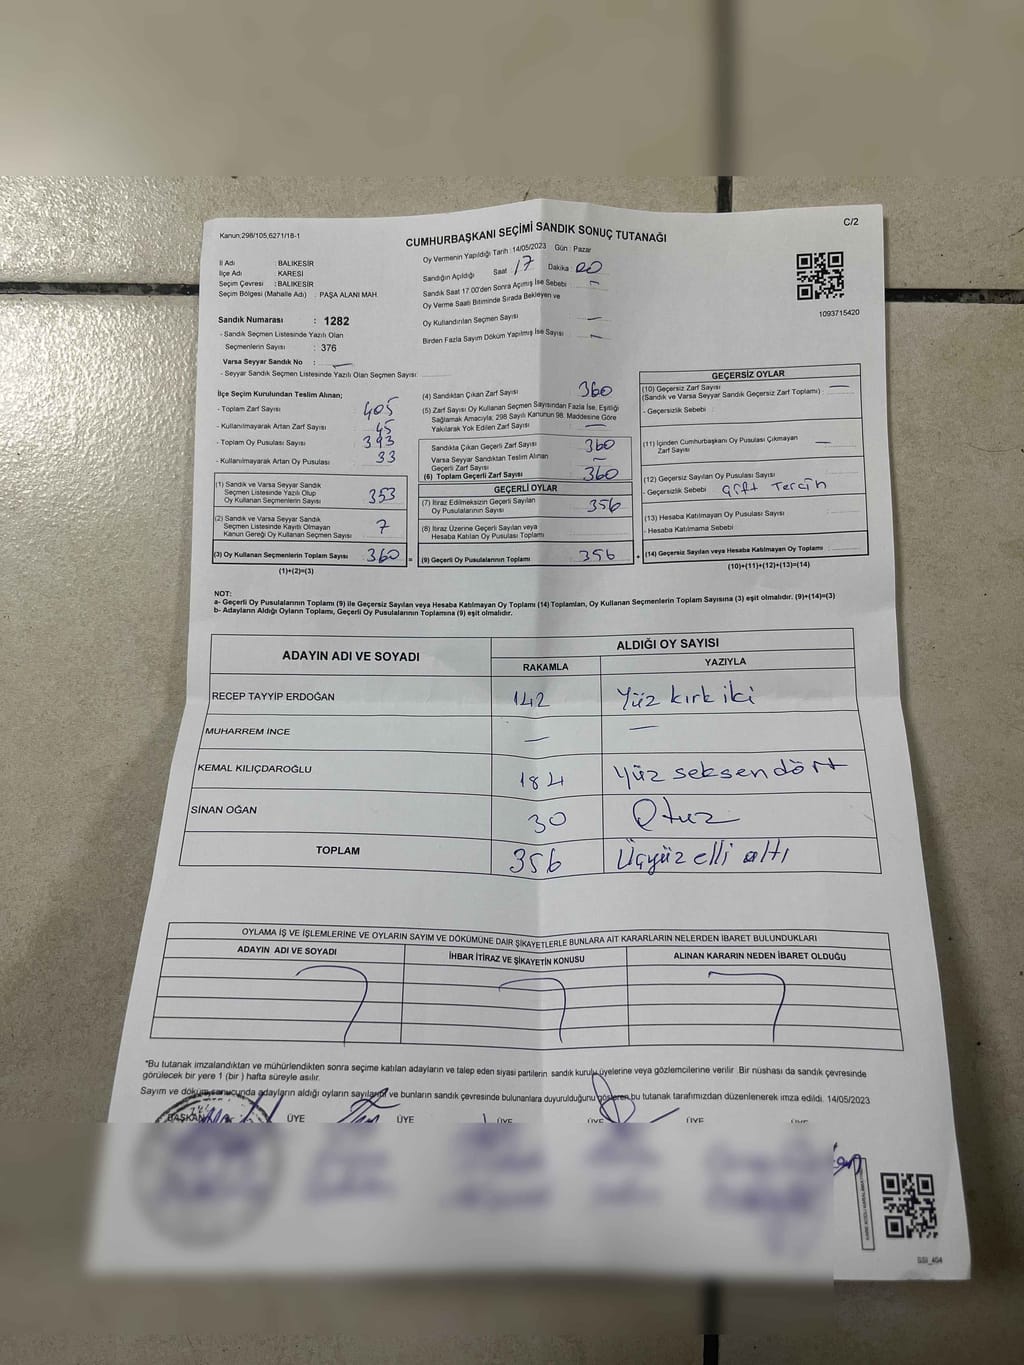 Kanun;298/105,6271/18-1
C/2
CUMHURBAŞKANI SEÇİMİ SANDIK SONUÇ TUTANAĞI
İl Adı : BALIKESİR
İlçe Adı : KARESİ
Seçim Çevresi : BALIKESİR
Seçim Bölgesi (Mahalle Adı) : PAŞA ALANI MAH.
Oy Vermenin Yapıldığı Tarih : 14/05/2023 Gün : Pazar
Sandığın Açıldığı Saat 17 Dakika : 00
Sandık Saat 17.00'den Sonra Açımış İse Sebebi : —
Oy Verme Saati Bitiminde Sırada Bekleyen ve
Oy Kullandırılan Seçmen Sayısı : —
Birden Fazla Sayım Döküm Yapılmış İse Sayısı : —
1093715420
Sandık Numarası : 1282
- Sandık Seçmen Listesinde Yazılı Olan
Seçmenlerin Sayısı : 376
Varsa Seyyar Sandık No : —
- Seyyar Sandık Seçmen Listesinde Yazılı Olan Seçmen Sayısı:
İlçe Seçim Kurulundan Teslim Alınan;
- Toplam Zarf Sayısı 405
- Kullanılmayarak Artan Zarf Sayısı 45
- Toplam Oy Pusulası Sayısı 393
- Kullanılmayarak Artan Oy Pusulası 33
(1) Sandık ve Varsa Seyyar Sandık
Seçmen Listesinde Yazılı Olup
Oy Kullanan Seçmenlerin Sayısı 353
(2) Sandık ve Varsa Seyyar Sandık
Seçmen Listesinde Kayıtlı Olmayan
Kanun Gereği Oy Kullanan Seçmen Sayısı 7
(3) Oy Kullanan Seçmenlerin Toplam Sayısı 360 =
(1)+(2)=(3)
(4) Sandıktan Çıkan Zarf Sayısı 360
(5) Zarf Sayısı Oy Kullanan Seçmen Sayısından Fazla İse, Eşitliği
Sağlamak Amacıyla; 298 Sayılı Kanunun 98. Maddesine Göre
Yakılarak Yok Edilen Zarf Sayısı —
Sandıkta Çıkan Geçerli Zarf Sayısı 360
Varsa Seyyar Sandıktan Teslim Alınan
Geçerli Zarf Sayısı —
(6) Toplam Geçerli Zarf Sayısı 360
GEÇERLİ OYLAR
(7) İtiraz Edilmeksizin Geçerli Sayılan
Oy Pusulalarının Sayısı 356
(8) İtiraz Üzerine Geçerli Sayılan veya
Hesaba Katılan Oy Pusulası Toplamı
(9) Geçerli Oy Pusulalarının Toplamı 356 +
GEÇERSİZ OYLAR
(10) Geçersiz Zarf Sayısı —
(Sandık ve Varsa Seyyar Sandık Geçersiz Zarf Toplamı) :
- Geçersizlik Sebebi :
(11) İçinden Cumhurbaşkanı Oy Pusulası Çıkmayan
Zarf Sayısı —
(12) Geçersiz Sayılan Oy Pusulası Sayısı
- Geçersizlik Sebebi Çift Tercih
(13) Hesaba Katılmayan Oy Pusulası Sayısı
- Hesaba Katılmama Sebebi
(14) Geçersiz Sayılan veya Hesaba Katılmayan Oy Toplamı :
(10)+(11)+(12)+(13)=(14)
NOT:
a- Geçerli Oy Pusulalarının Toplamı (9) ile Geçersiz Sayılan veya Hesaba Katılmayan Oy Toplamı (14) Toplamları, Oy Kullanan Seçmenlerin Toplam Sayısına (3) eşit olmalıdır. (9)+(14)=(3)
b- Adayların Aldığı Oyların Toplamı, Geçerli Oy Pusulalarının Toplamına (9) eşit olmalıdır.
ADAYIN ADI VE SOYADI
ALDIĞI OY SAYISI
RAKAMLA YAZIYLA
RECEP TAYYİP ERDOĞAN 142 Yüz kırk iki
MUHARREM İNCE — —
KEMAL KILIÇDAROĞLU 184 Yüz seksen dört
SİNAN OĞAN 30 Otuz
TOPLAM 356 Üçyüz elli altı
OYLAMA İŞ VE İŞLEMLERİNE VE OYLARIN SAYIM VE DÖKÜMÜNE DAİR ŞİKAYETLERLE BUNLARA AİT KARARLARIN NELERDEN İBARET BULUNDUKLARI
ADAYIN ADI VE SOYADI İHBAR İTİRAZ VE ŞİKAYETİN KONUSU ALINAN KARARIN NEDEN İBARET OLDUĞU
*Bu tutanak imzalandıktan ve mühürlendikten sonra seçime katılan adayların ve talep eden siyasi partilerin sandık kurulu üyelerine veya gözlemcilerine verilir .Bir nüshası da sandık çevresinde
görülecek bir yere 1 (bir ) hafta süreyle asılır.
Sayım ve döküm sonucunda adayların aldığı oyların sayılarını ve bunların sandık çevresinde bulunanlara duyurulduğunu gösteren bu tutanak tarafımızdan düzenlenerek imza edildi. 14/05/2023
BAŞKAN ÜYE ÜYE ÜYE ÜYE ÜYE